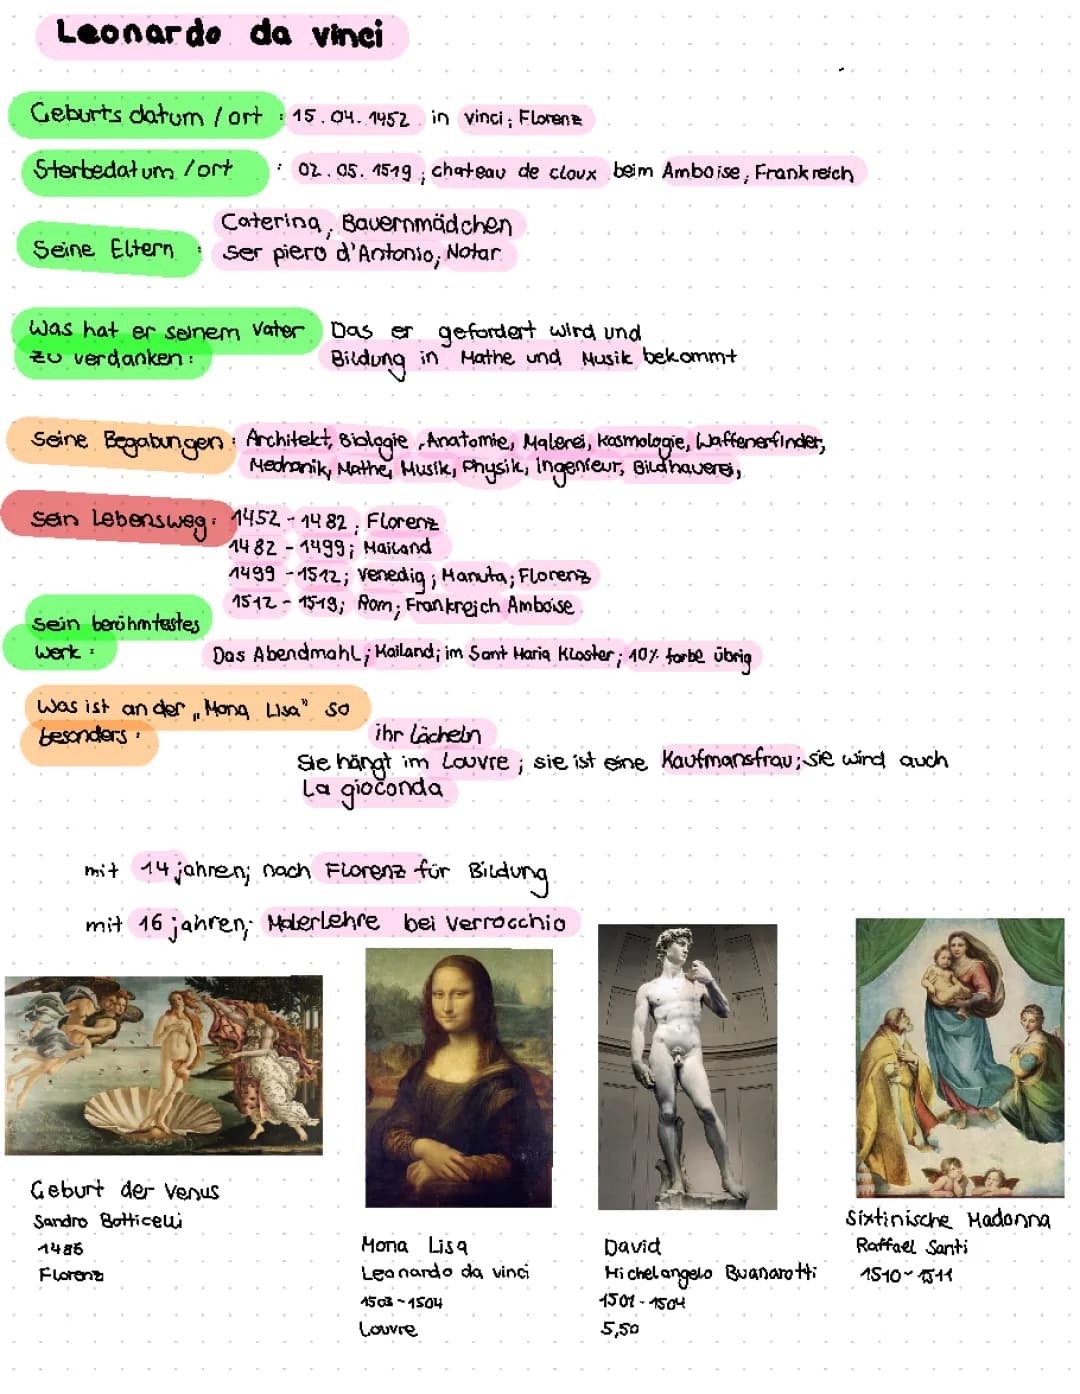 Leonardo da vinci
Geburtsdatum / ort : 15.04.1452 in vinci; Florenz
Sterbedatum / ort : 02.05.1519; chateau de cloux beim Amboise, Frankreich
Seine Eltern : Caterina, Bauernmädchen
ser piero d'Antonio; Notar
Was hat er seinem Vater zu verdanken: Das er gefordert wird und
Bildung in Mathe und Musik bekommt
Seine Begabungen: Architekt, Biologie, Anatomie, Malerei, Kosmologie, Waffenerfinder,
Mechanik, Mathe, Musik, Physik, Ingenieur, Bildhauerei,
sein Lebensweg: 1452 - 1482; Florenz
1482 - 1499; Mailand
1499 - 1512; Venedig; Manuta; Florenz
1512 - 1519; Rom; Frankreich Amboise
sein berühmtestes
Werk: Das Abendmahl; Mailand; im Sant Maria Kloster; 10% farbe übrig
Was ist an der „Mona Lisa" so
besonders: ihr Lächeln
Sie hängt im Louvre; sie ist eine Kaufmansfrau; sie wird auch
La gioconda
mit 14 jahren; nach Florenz für Bildung
mit 16 jahren; Malerlehre bei Verrocchio
Geburt der Venus
Sandro Botticelli
1486
Florenz
Mona Lisa
Leonardo da vinci
1503-1504
Louvre
David
Michelangelo Buanarotti
1501-1504
5,50
Sixtinische Madonna
Raffael Santi
1510-1511